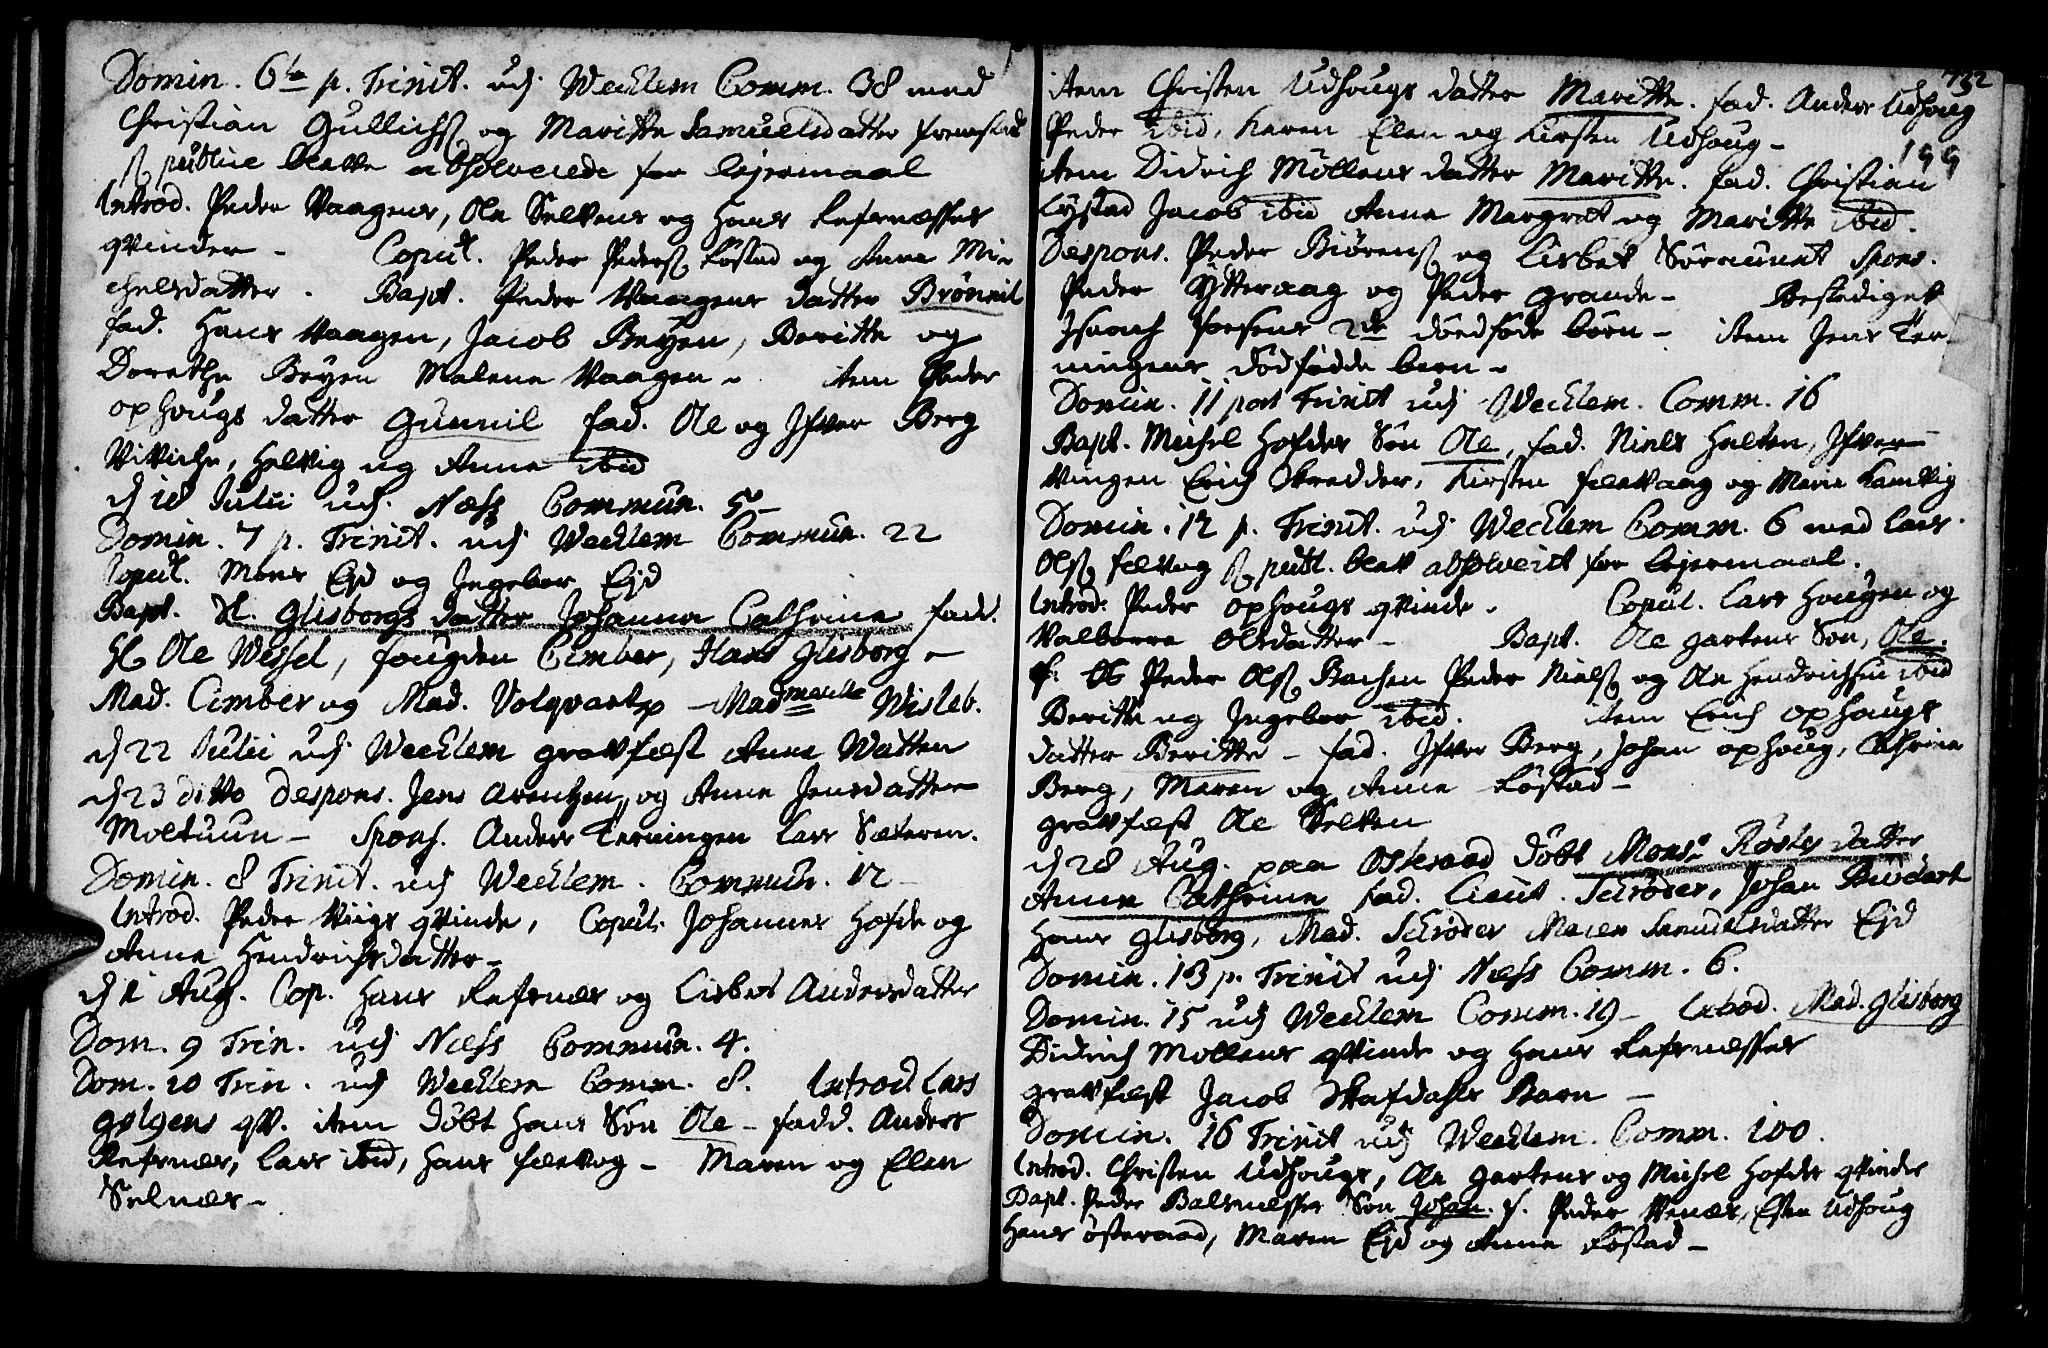 Domin. 6te p. Trinit. udj Wecklem Comm. 38 med
Christian Gullichs. og Maritte Samuelsdatter
publice absolverede for lejermaal
Introd. Peder Vaagens, Ole Selvens og Hans Refsnæsses
qvinder - Copul. Peder Peders. Løstad og Anna Mi-
chelsdatter. Bapt. Peder Vaagens datter Brønnil
fad. Hans Vaagen, Jacob Beyen, Beritte og
Dorethe Beyen Malene Vaagen - item Peder
Ophougs datter Gunnil fad. Ole og Ifver Berg
Vivicke, Helvig og Anne ibid
d 18 Julii udj Næss Commun. 5 -
Domin. 7 p. Trinit. udj Wecklem Commun. 22
Copul. Mons Ejd og Ingebor Ejd
Bapt. Hr. Glisborgs datter Johanna Cathrina fadd.
Hr Ole Wessel, fougden Cimber, Hans Glisborg -
Mad. Cimber og Mad. Volqvartz - Madmoiselle Wisleb.
d 22 Julii udj Wecklem gravfæst Anne Watten
d 23 ditto Despons. Jens Arentzen og Anne Jensdatter
Moltuun - Spons. Anders Terningen Lars Sæteren.
Domin. 8 Trinit. udj Wecklem. Commun. 12 -
Introd. Peder Viigs qvinde, Copul. Johannes Hofde og
Anne Hendrichsdatter -
d 1 Aug. Cop. Hans Refsnæs og Lisbet Andersdatter
Dom. 9 Trin. udj Næss Commun. 4.
Dom. 10 Trin. udj Wecklem Comm. 8. Introd. Lars
Gølgens qv. item døbt Hans Søn Ole - fadd. Anders
Refsnæs, Lars ibid, Hans fævog - Maren og Elen
Selnæs -
732
item Christen Udhougs datter Maritte. fad. Anders Udhoug
Peder ibid, Karen Elen og Kirsten Udhoug -
199
item Didrich Möllens datter Maritte. fad. Christian
Lystad Jacob ibid Anne Margret og Maritte ibid.
Despons. Peder Biørens. og Lisbet Spons.
Peder Ytteraag og Peder Grande - Bestediget
Isaach 2de dødføde børn - item Jens Ter-
ningens dødfødde barn -
Domin. 11 post Trinit udj Wecklem. Comm. 16
Bapt. Michel Hofdes Søn Ole, fad. Niels Halten, Ifver
Vingen Erich Skredder, Kirsten fævaag og Maren
Domin. 12 p. Trinit. udj Wecklem Comm. 6 med Lars
Ols. fævog publ. absolverit for lejermaal.
Introd. Peder Ophougs qvinde. Copul. Lars Hougen og
Valborre Olsdatter - Bapt. Ole Gartens Søn, Ole.
f. Ole Peder Ols. Bachen Peder Niels. og Ole Hendrichsen ibid
Beritte og Ingebor ibid. item Erich Ophougs
datter Beritte - fad. Ifver Berg, Johan Ophoug, Cathrina
Berg, Maren og Anne Løstad -
gravfæst Ole Selven
d 28 Aug. paa Osteraad døbt Monsr Røsleds datter
Anna Cathrina fad. Lieut. Schrøder, Johan
Hans Glisborg, Mad. Schrøder Maren Samuelsdatter Ejd
Domin. 13 p. Trinit udj Næss Comm. 6.
Domin. 15 udj Wecklem Comm. 19 - Introd. Mad. Glisborg
Didrich Möllens qvinde og Hans Refsnæsses
gravfæst Jacob Skafdahls Barn -
Domin. 16 Trinit udj Wecklem. Comm. 100.
Introd. Christen Udhougs, Ole Gartens og Michel Hofdes qvinder
Bapt. Peder Balsnesses Søn Johan. f. Peder Venæs, Esten Udhoug
Hans Østeraad, Maren Ejd og Anne Løstad -